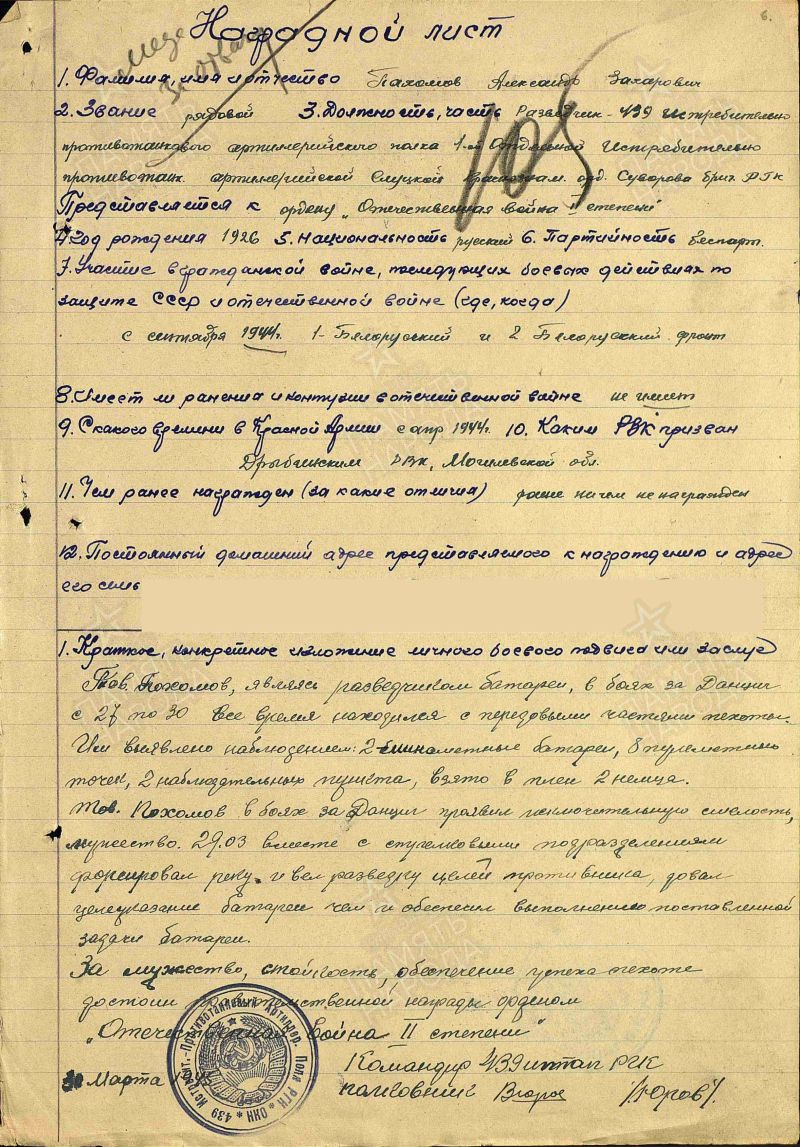 6.
Наградной лист
медаль
За отвагу
105
1. Фамилия, имя и отчество Пахомов Александр Захарович
2. Звание рядовой 3. Должность, часть Разведчик - 439 истребительно
противотанкового артиллерийского полка 1-ой Отдельной Истребительно
противотанк. артиллерийской Слуцкой Краснознам. орд. Суворова бриг. РГК
Представляется к ордену „Отечественная война II степени"
4. Год рождения 1926 5. Национальность русский 6. Партийность беспарт.
7. Участие в гражданской войне, последующих боевых действиях по
защите СССР и отечественной войне (где, когда)
с сентября 1944г. 1-Белорусский и 2 Белорусский фронт
8. Имеет ли ранения и контузии в отечественной войне не имеет
9. С какого времени в Красной Армии с апр 1944г. 10. Каким РВК призван
Дрыбинским РВК, Могилевской обл.
11. Чем ранее награжден (за какие отличия) ранее ничем не награжден
12. Постоянный домашний адрес представляемого к награждению и адрес
его семь
1. Краткое, конкретное изложение личного боевого подвига или заслуг
Тов. Похомов, являясь разведчиком батареи, в боях за Данциг
с 27 по 30 все время находился с передовыми частями пехоты.
Им выявлено наблюдением: 2 минометные батареи, 8 пулеметных
точек, 2 наблюдательных пункта, взято в плен 2 немца.
Тов. Похомов в боях за Данциг проявил исключительную смелость,
мужество. 29.03 вместе с стрелковыми подразделениям
форсировал реку и вел разведку целей противника, довал
целеуказание батареи чем и обеспечил выполнение поставленной
задачи батареи.
За мужество, стойкость, обеспечение успеха пехоте
достоин правительственной награды орденом
„Отечественная война II степени"
Командир 439 иптап РГК
30 Марта 1945 полковник /Юров/.
Истребит.-Противотанковый Артиллер. Полк РГК * 439 *
ПАМЯТЬ НАРОДА